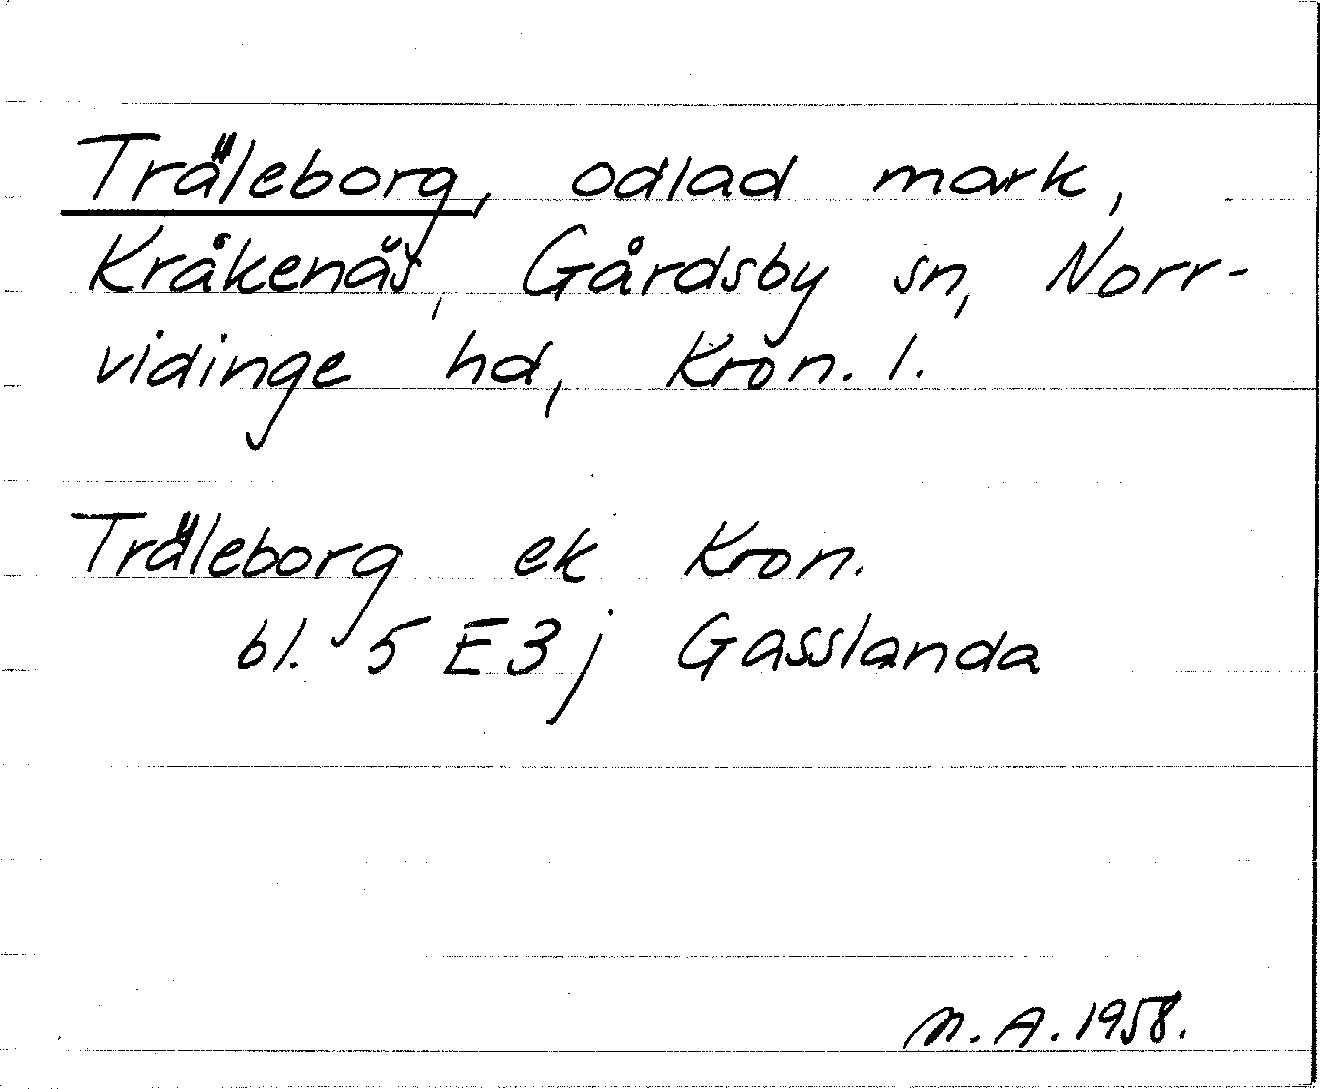 Träleborg, odlad mark,
Kråkenäs, Gårdsby sn, Norr-
vidinge hd, Kron. l.
Träleborg ek Kron.
bl. 5 E 3 j Gasslanda
M. A. 1958.